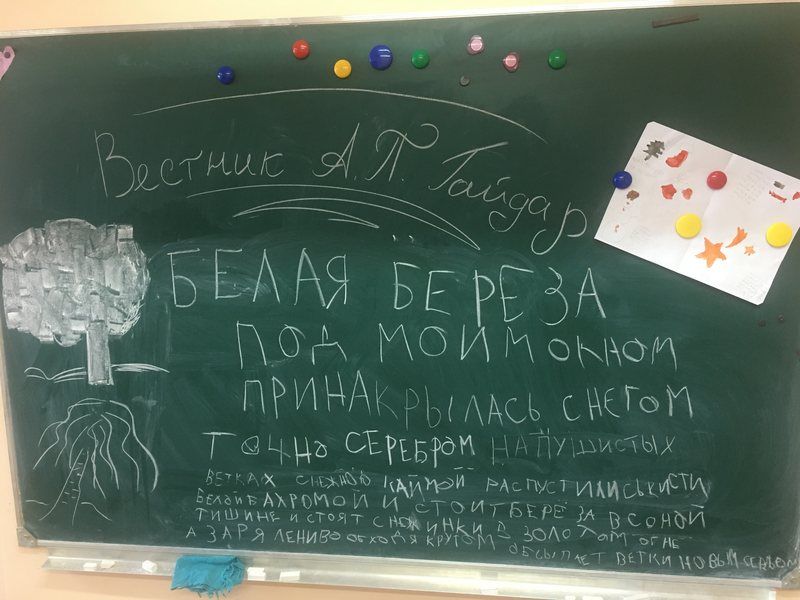 Вестник А.П. Гайдар
БЕЛАЯ БЕРЕЗА
ПОД МОИМ ОКНОМ
ПРИНАКРЫЛАСЬ СНЕГОМ
ТОЧНО СЕРЕБРОМ НА ПУШИСТЫХ
ВЕТКАХ СНЕЖНОЮ КАЙМОЙ РАСПУСТИЛИСЬ КИСТИ
БЕЛОЙ БАХРОМОЙ И СТОИТ БЕРЕЗА В СОНОЙ
ТИШИНЕ И СТОЯТ СНЕЖИНКИ В ЗОЛОТОМ ОГНЕ
А ЗАРЯ ЛЕНИВО ОБХОДЯ КРУГОМ ОБСЫПАЕТ ВЕТКИ НОВЫМ